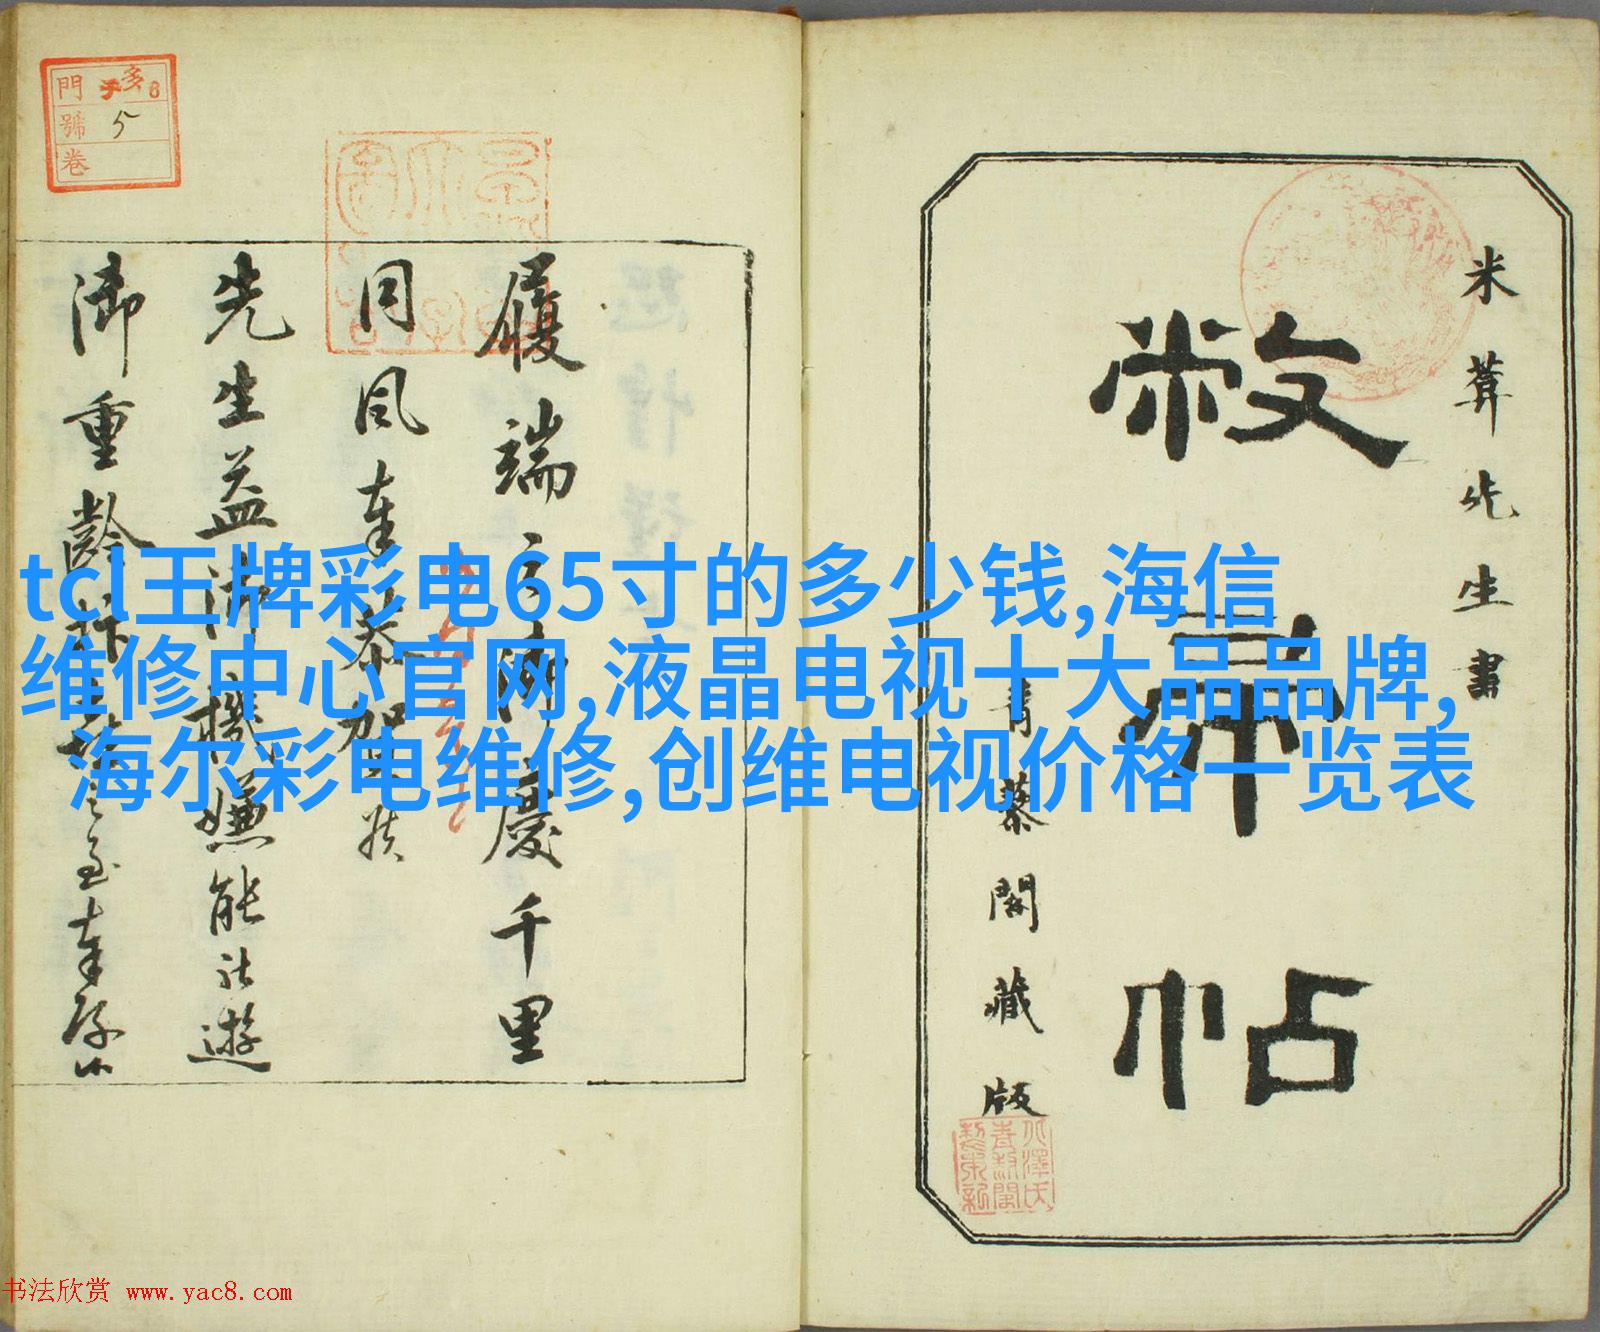 米葊先生書
敝帚帖
青藜閣藏版
門
號 5
卷
履端之御慶千里
同風奉恭賀候
先生益御機嫌能被遊
御重齢
tcl王牌彩电65寸的多少钱,海信
维修中心官网,液晶电视十大品品牌,
海尔彩电维修,创维电视价格一览表
书法欣赏 www.yac8.com